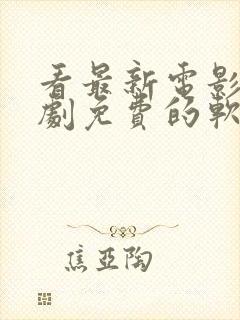 看最新电影
劇免費的軟
焦亚陶